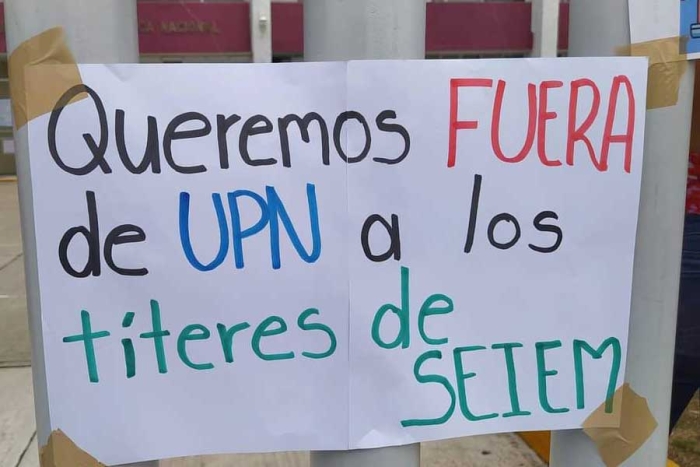 CA NACIONAL
Queremos FUERA
de UPN a los
títeres de
SEIEM